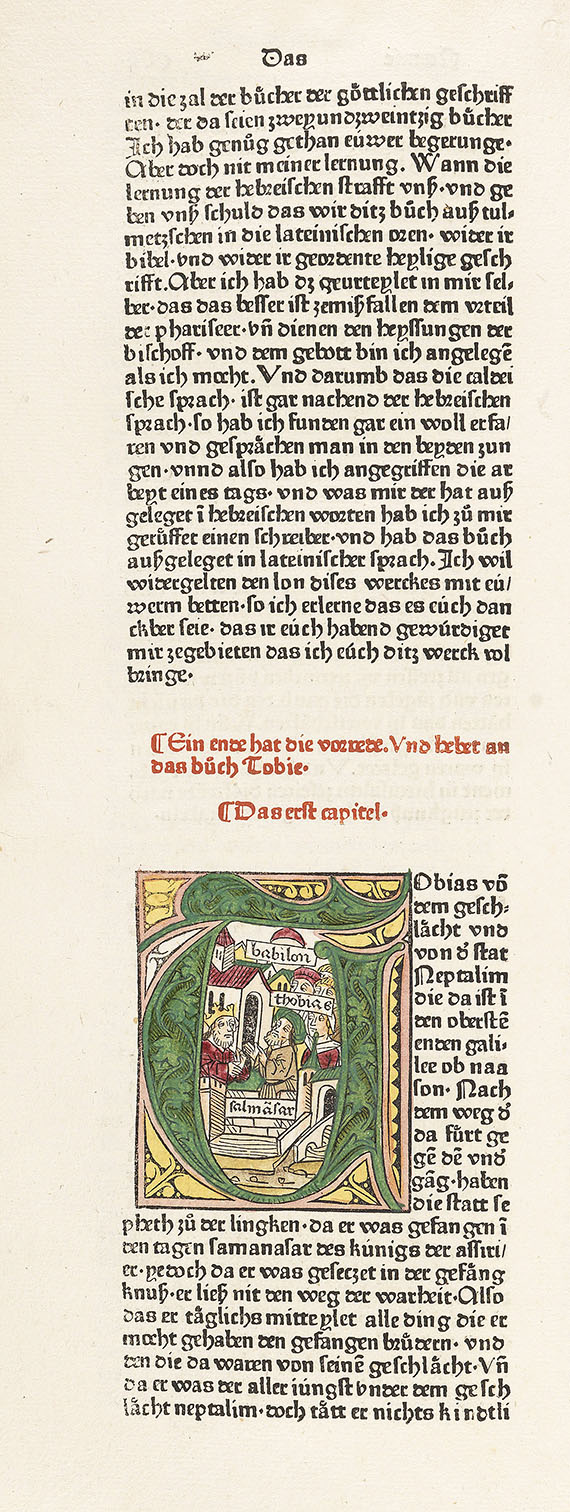 Das
in die zal der bůcher der gőttlichen geschriff
ten· der da seien zweyundzweintzig bůcher
Ich hab genůg gethan eúwer begerunge·
Aber doch nit meiner lernung. Wann die
lernung der hebreischen strafft vnß·vnd ge
ben vnß schuld das wir ditz bůch auß tul⸗
metzschen in die lateinischen oren· wider ir
bibel·vnd wider ir geordente heylige gesch
rifft.Aber ich hab dz geurteylet in mir sel⸗
ber·das das besser ist zemißfallen dem vrteil
der phariseer·vñ dienen den heyssungen der
bischoff· vnd dem gebott bin ich angelegē
als ich mocht.Vnd darumb das die caldei
sche sprach· ist gar nachend der hebreischen
sprach·so hab ich funden gar ein woll erfa/
ren vnd gesprächen man in den beyden zun
gen·vnnd also hab ich angegriffen die ar
beyt eines tags· vnd was mir der hat auß
geleget ī hebreischen worten hab ich zů mir
gerůffet einen schreiber·vnd hab das bůch
außgeleget in lateinischer sprach.Ich wil
widergelten den lon dises werckes mit eú/
werm betten·so ich erlerne das es eúch dan
ckber seie· das ir eúch habend gewúrdiget
mir zegebieten das ich eúch ditz werck vol
bringe·
¶Ein ende hat die vorrede.Vnd hebet an
das bůch Tobie·
¶Das erst capitel·
babilon
thobias
salmāsar
Obias vō
dem gesch⸗
lächt vnd
von d̄ stat
Neptalim
die da ist ī
den oberstē
enden gali⸗
lee ob naa
son· Nach
dem weg d̄
da fúrt ge
gē dē vnd̄
gāg·haben
die statt se
pheth zů der lingken·da er was gefangen ī
den tagen samanasar des kúnigs der assiri/
er·yedoch da er was geseczet in der gefäng
knuß·er ließ nit den weg der warheit·Also
das er täglichs mitteylet alle ding die er
mocht gehaben den gefangen brůdern· vnd
den die da waren von seinē geschlächt·Vñ
da er was der aller iúngst vnder dem gesch
lächt neptalim·doch tått er nichts kindtli